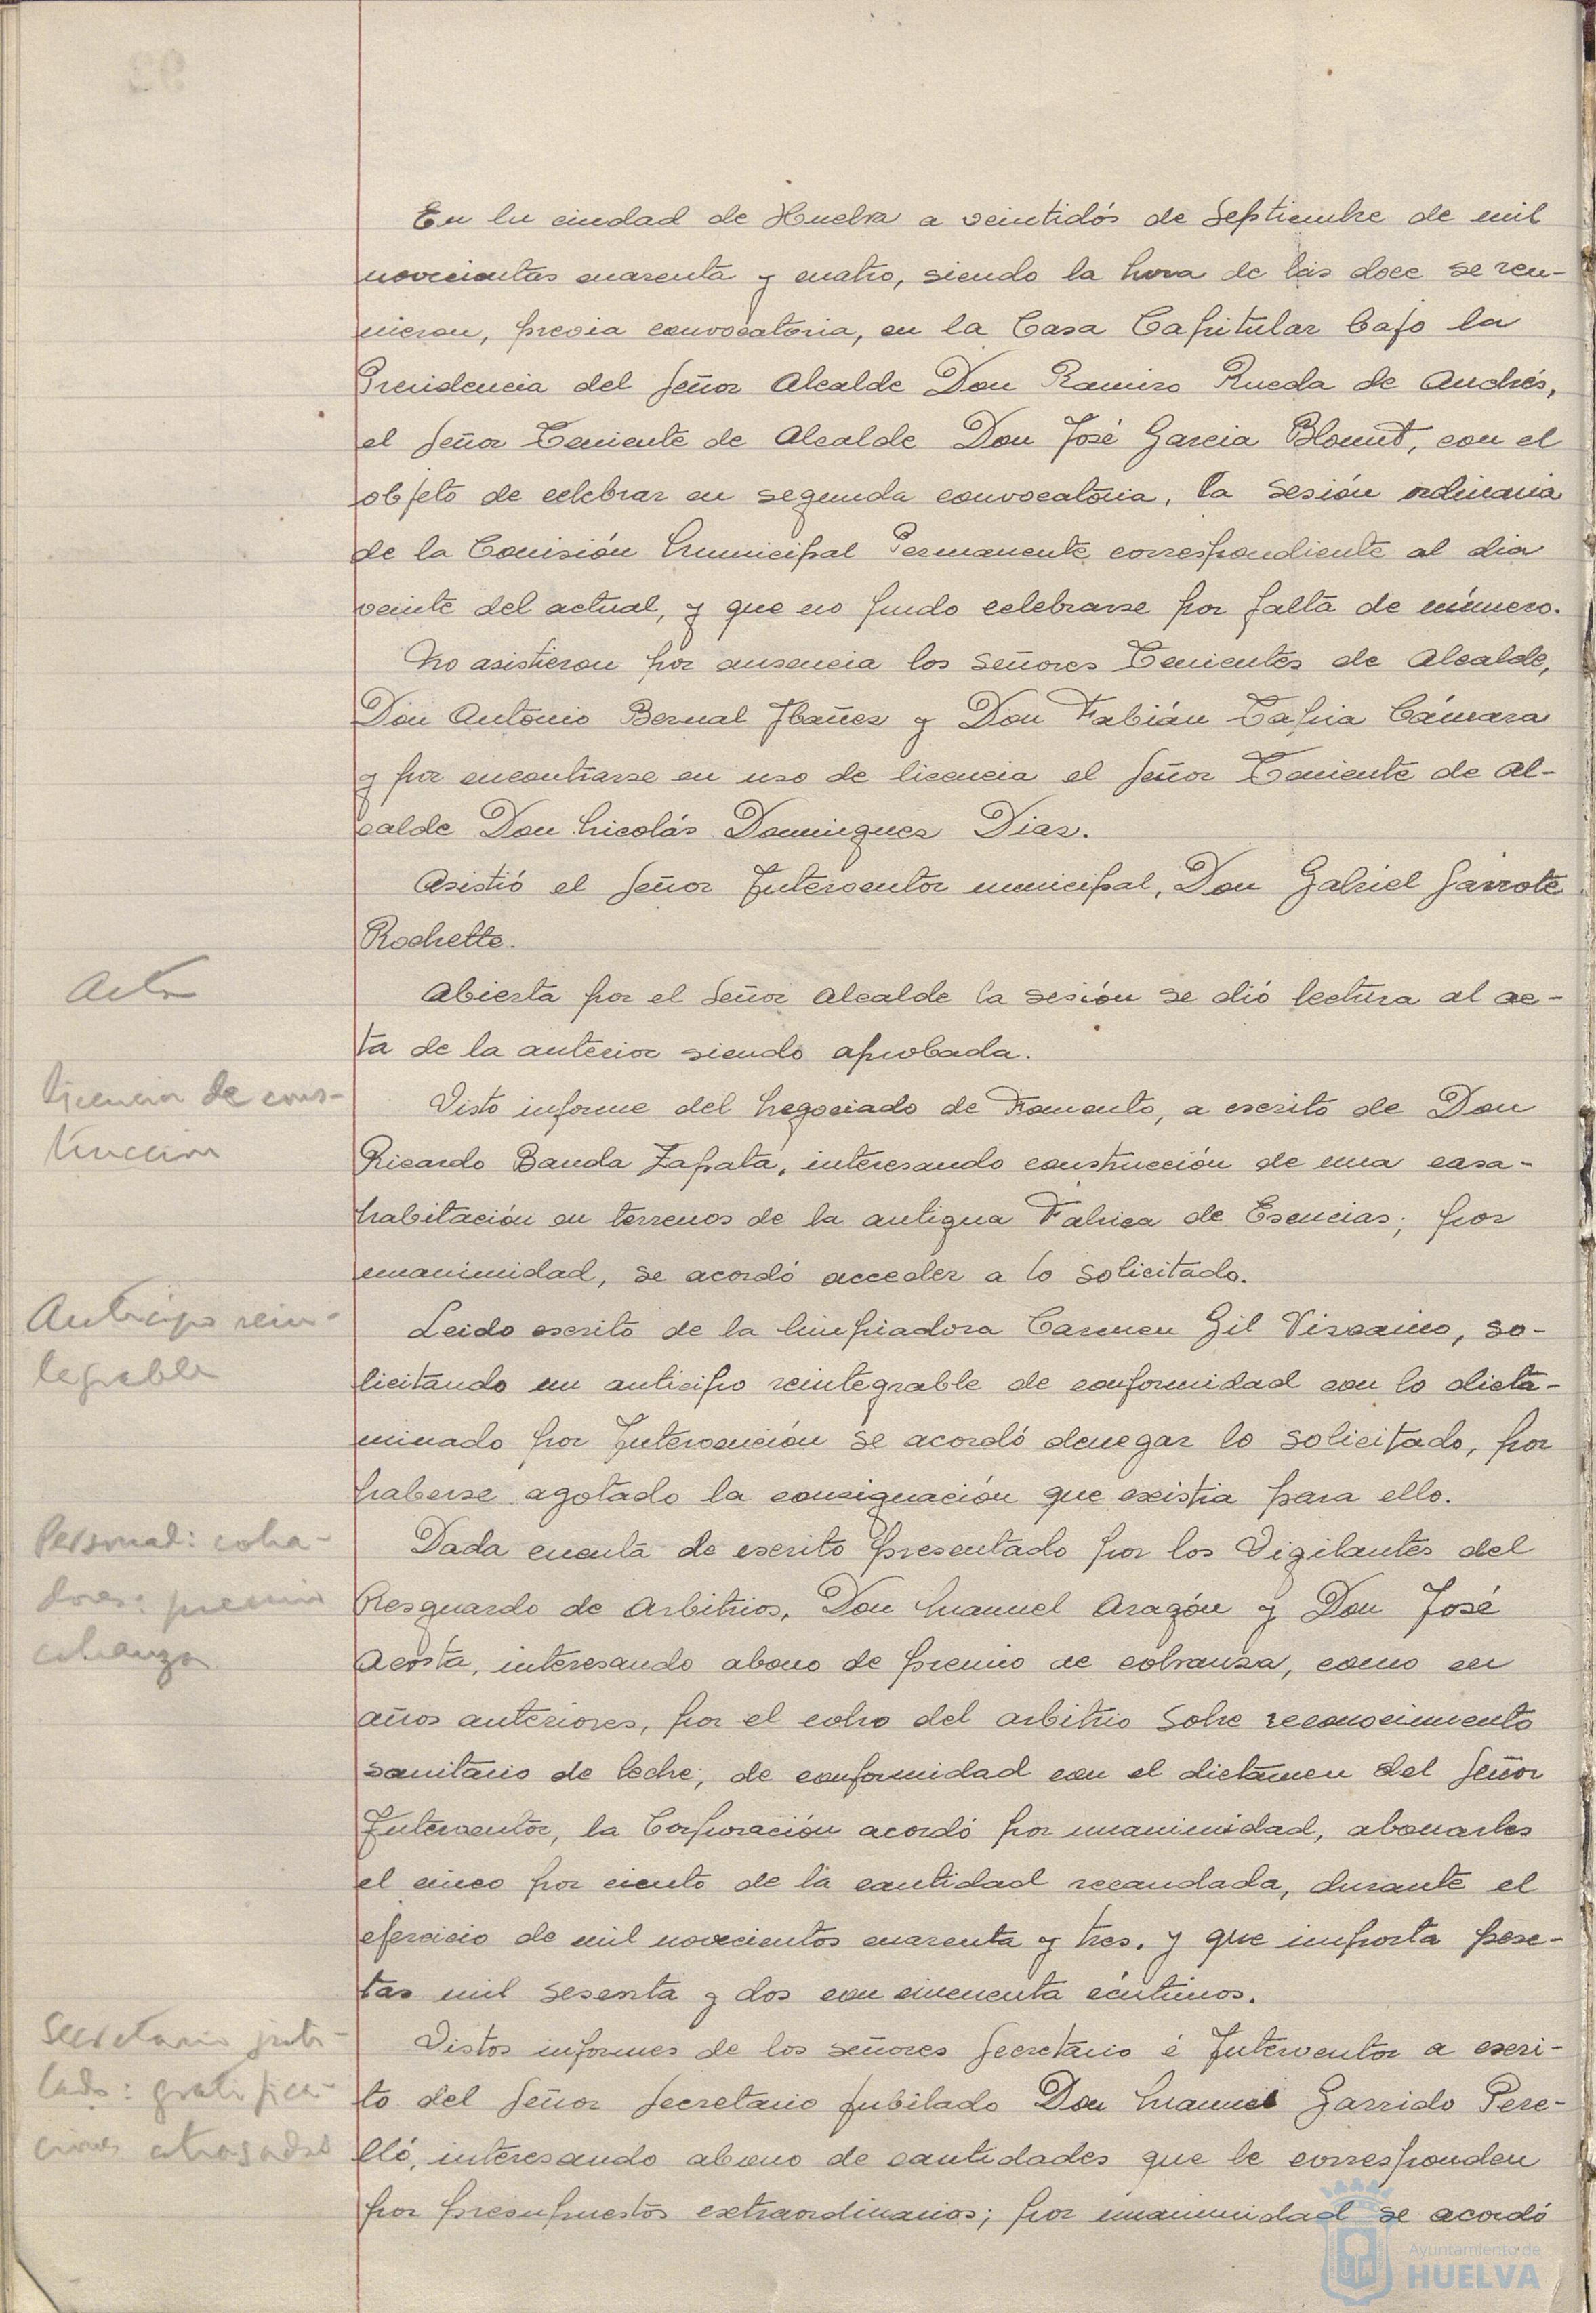 En la ciudad de Huelva a veintidós de Septiembre de mil
novecientos cuarenta y cuatro, siendo la hora de las doce se reu-
nieron, previa convocatoria, en la Casa Capitular bajo la
Presidencia del Señor Alcalde Don Ramiro Rueda de Andrés,
el Señor Teniente de Alcalde Don José Garcia Blount, con el
objeto de celebrar en segunda convocatoria, la sesión ordinaria
de la Comisión Municipal Permanente correspondiente al dia
veinte del actual, y que no pudo celebrarse por falta de número.
No asistieron por ausencia los señores Tenientes de Alcalde,
Don Antonio Bernal Ibañez y Don Fabián Tapia Cámara
y por encontrarse en uso de licencia el Señor Teniente de Al-
calde Don Nicolás Dominguez Diaz.
Asistió el Señor Interventor municipal, Don Gabriel Garrote
Rochette.
Acta
Abierta por el Señor Alcalde la sesión se dió lectura al ac-
ta de la anterior siendo aprobada.
Licencia de cons-
trucción
Visto informe del Negociado de Fomento, a escrito de Don
Ricardo Banda Zapata, interesando construcción de una casa-
habitación en terrenos de la antigua Fabrica de Esencias; por
unanimidad, se acordó acceder a lo solicitado.
Anticipo rein-
tegrable
Leido escrito de la limpiadora Carmen Gil Vizcaino, so-
licitando un anticipo reintegrable de conformidad con lo dicta-
minado por Intervención se acordó denegar lo solicitado, por
haberse agotado la consignación que existia para ello.
Personal: cobra-
dores: premio
cobranza
Dada cuenta de escrito presentado por los Vigilantes del
Resguardo de Arbitrios, Don Manuel Aragón y Don José
Acosta, interesando abono de premio de cobranza, como en
años anteriores, por el cobro del arbitrio sobre reconocimiento
sanitario de leche; de conformidad con el dictámen del Señor
Interventor, la Corporación acordó por unanimidad, abonarles
el cinco por ciento de la cantidad recaudada, durante el
ejercicio de mil novecientos cuarenta y tres, y que importa pese-
tas mil sesenta y dos con cincuenta céntimos.
Secretario jubi-
lado: gratifica-
ciones atrasadas
Vistos informes de los señores Secretario é Interventor a escri-
to del Señor Secretario jubilado Don Manuel Garrido Pere-
lló, interesando abono de cantidades que le corresponden
por presupuestos extraordinarios; por unanimidad se acordó
Ayuntamiento de
HUELVA